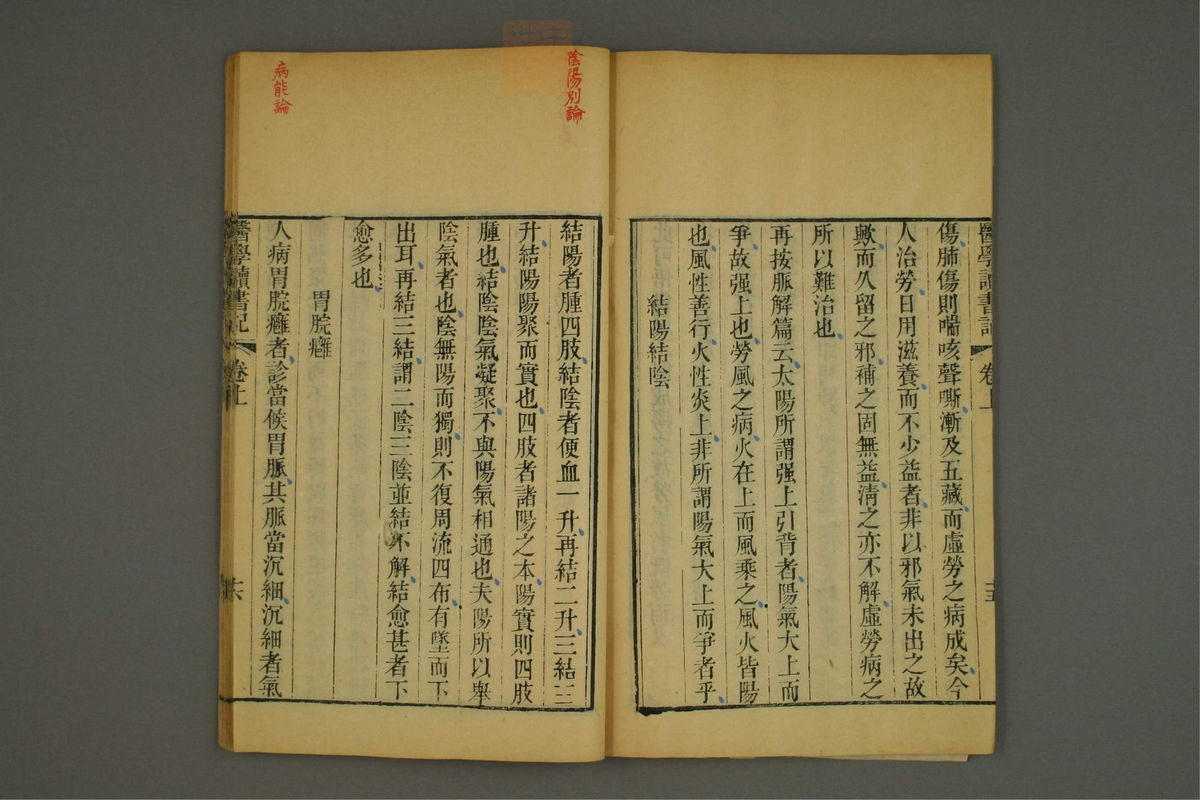 醫學讀書記 卷上 十五
傷肺傷則喘咳聲嘶漸及五藏而虛勞之病成矣今
人治勞日用滋養而不少益者非以邪氣未出之故
歟而久留之邪補之固無益清之亦不解虛勞病之
所以難治也
再按脈解篇云太陽所謂强上引背者陽氣大上而
爭故强上也勞風之病火在上而風乘之風火皆陽
也風性善行火性炎上非所謂陽氣大上而爭者乎
結陽結陰
陰陽別論
結陽者腫四肢結陰者便血一升再結二升三結三
升結陽陽聚而實也四肢者諸陽之本陽實則四肢
腫也結陰陰氣凝聚不與陽氣相通也夫陽所以舉
陰氣者也陰無陽而獨則不復周流四布有墜而下
出耳再結三結謂二陰三陰並結不解結愈甚者下
愈多也
胃脘癰
病能論
人病胃脘癰者診當候胃脈其脈當沉細沉細者氣
醫學讀書記 卷上 十六